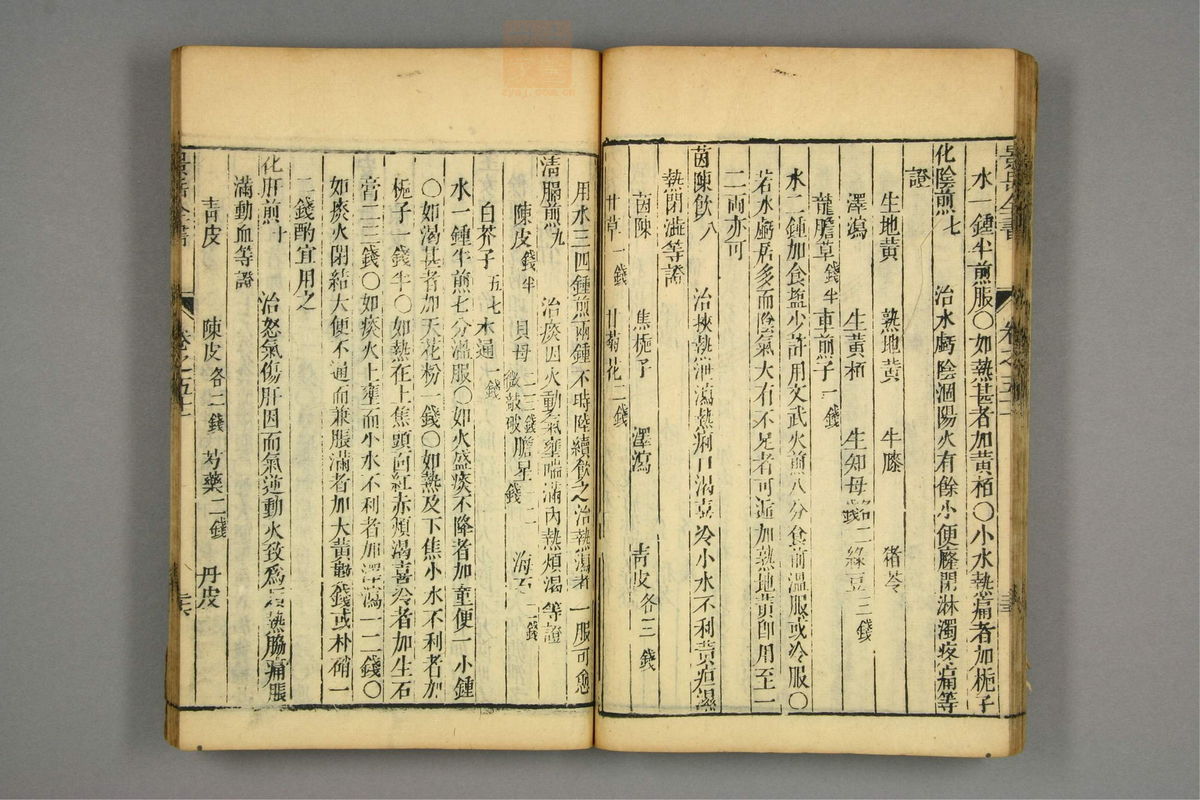 水一鍾半煎服○如熱甚者加黃栢○小水熱痛者加梔子
化陰煎七 治水虧陰涸陽火有餘小便癃閉淋濁疼痛等
證
生地黃 熟地黃 牛膝 猪苓
澤瀉 生黃栢 生知母各二錢 綠豆三錢
龍膽草錢半 車前子一錢
水二鍾加食鹽少許用文武火煎八分食前溫服或冷服○
若水虧居多而陰氣大有不足者可逓加熟地黃卽用至一
二兩亦可
茵陳飲八 治挾熱泄瀉熱痢口渴喜冷小水不利黃疸濕
熱閉澁等證
茵陳 焦梔子 澤瀉 青皮各三錢
甘草一錢 甘菊花二錢
用水三四鍾煎兩鍾不時陸續飲之治熱瀉者一服可愈
清膈煎九 治痰因火動氣壅喘滿內熱煩渴等證
陳皮錢半 貝母二三錢微敲破 膽星一二錢 海石二錢
白芥子五七 木通二錢
水一鍾半煎七分溫服○如火盛痰不降者加童便一小鍾
○如渴甚者加天花粉一錢○如熱及下焦小水不利者加
梔子一錢半○如熱在上焦頭面紅赤煩渴喜冷者加生石
膏二三錢○如痰火上壅而小水不利者加澤瀉一二錢○
如痰火閉結大便不通而兼脹滿者加大黃數錢或朴硝一
二錢酌宜用之
化肝煎十 治怒氣傷肝因而氣逆動火致爲煩熱脇痛脹
滿動血等證
青皮 陳皮各二錢 芍藥二錢 丹皮
景岳全書
卷之五十一